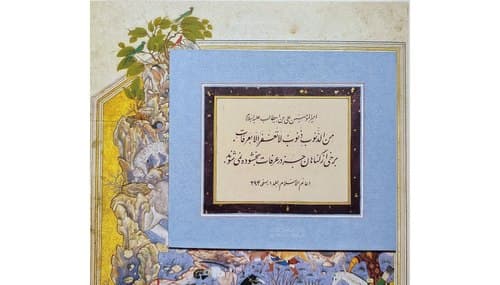 امیرالمؤمنین علی بن ابیطالب علیه‌السلام
من الذنوب ذنوب لا تغفر الا بعرفات.
برخی از گناهان جز در عرفات بخشوده نمی‌شود.
دعائم الاسلام جلد ۱، صفحه ۲۹۴